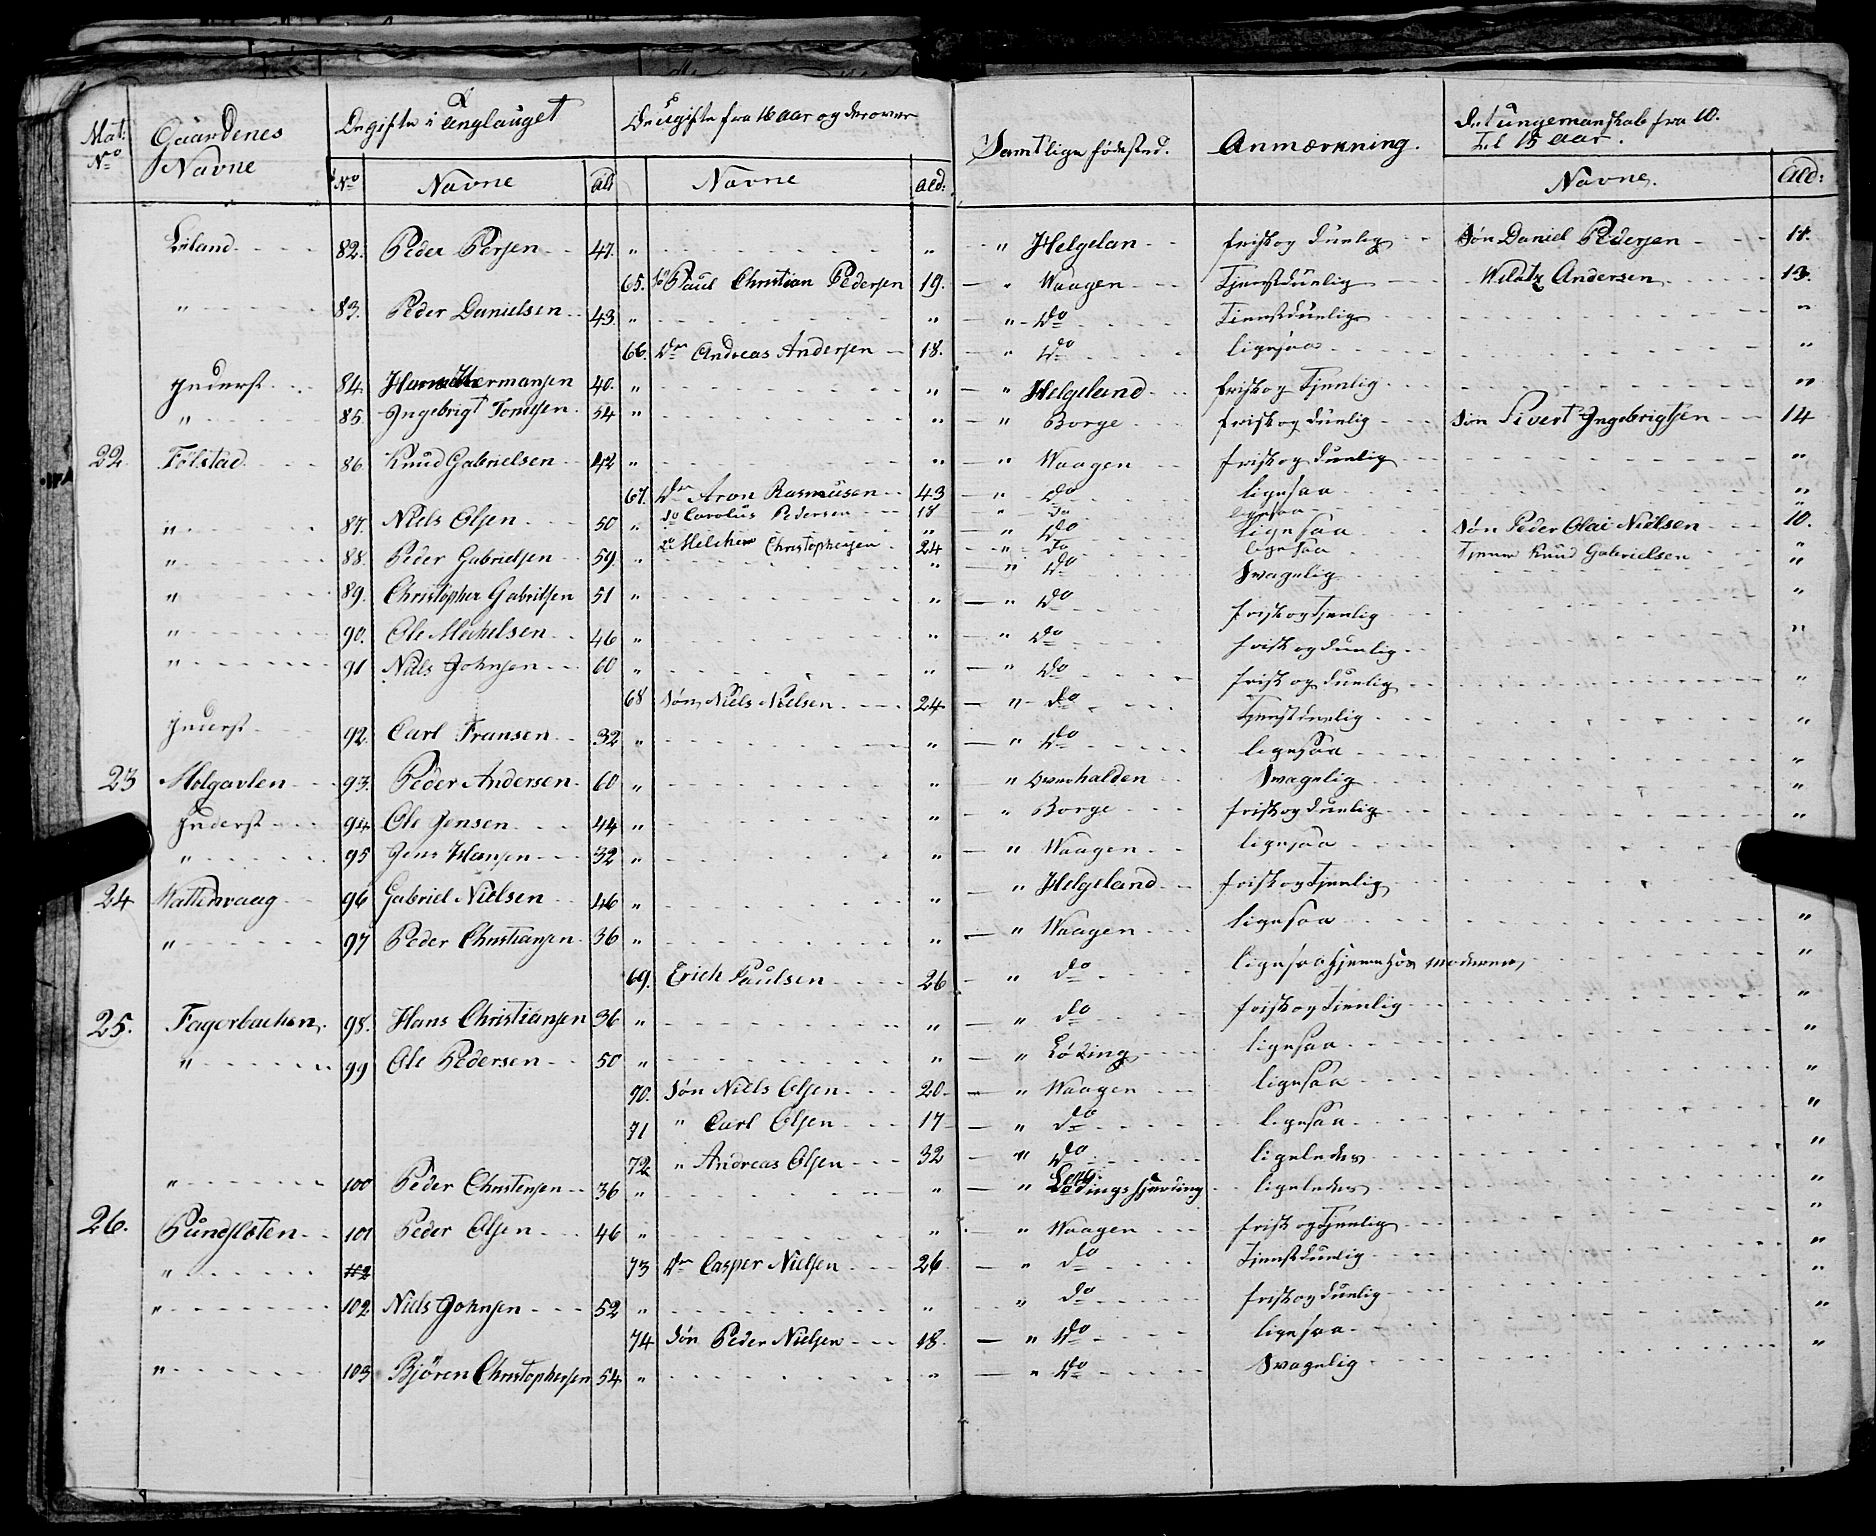 Mat: No Gaardenes Navne De gifte i Anglauget De ugifte fra 16 aar og derover Samtlige fødested. Anmærkning. Det unge manskab fra 10. til 15 aar.
No Navne Ald Navne Ald: Navne. Ald:
82. Peder Persen 47. " " " Helgelan frisk og dunlig Søn Daniel Pedersen 11.
65. Paul Christian Pedersen 19. " Waagen Tjenstdunlig Andersen 13.
" 83. Peder Danielsen 43. " " " Do Tienstdunlig "
66. Dr Andreas Andersen 18. " Do ligesaa "
Inderst 84. Hermansen 40. " " " Helgeland frisk og Tjenlig "
" 85. Ingebrigt Tomesen 54 " " " Borge frisk og dunlig Søn Sivert Ingebrigtsen 14
22 Følstad 86 Knud Gabrielsen 42 " " " Waagen frisk og dunlig "
67. Dr Aron Rasmusen 43 " Do ligesaa "
do Carolus Pedersen 18 " Do ligesaa
" 87. Niels Olsen 50 " " " Do ligesaa Søn Peder Olai Nielsen 10.
Do Melcher Christophersen 24 " Do ligesaa Tjener Knud Gabrielsen "
" 88. Peder Gabrielsen 59. " " " Do Svagelig "
" 89. Christopher Gabrilsen 51 " " " Do frisk og Tjenlig "
" 90. Ole Mikelsen 46 " " " Do frisk og dunlig "
" 91 Niels Johnsen 60 " " " Do frisk og dunlig "
68 Søn Niels Nielsen 24 " do Tjenstdunlig "
Inderst 92. Carl Fransen 32 " " " Do ligesaa "
23 Holgavlen 93. Peder Andersen 60 " " " Overhalden Svagelig "
Inderst 94 Ole Jensen 44 " " " Borge frisk og dunlig "
" 95 Jens Hansen 32 " " " Waagen ligesaa
24 Watterwaag 96 Gabriel Nielsen 46 " " " Helgeland frisk og Tjenlig
" 97 Peder Christiansen 36 " " " Waagen ligesaa "
69. Erich Paulsen 26 " do ligesaa hjeme hos moderen "
25. Fagerbachen 98. Hans Christiansen 36 " " " do frisk og Tienlig "
" 99 Ole Pedersen 50 " " " Løding ligesaa "
70. Søn Niels Olsen 20 " Waagen ligesaa "
71 " Carl Olsen 17 " do ligesaa "
72 " Andreas Olsen 32 " Do ligeledes "
" 100 Peder Christensen 36 " " " Lødings fjerding ligeledes "
26. Pundsletten 101 Peder Olsen 46 " " " Waagen frisk og Tjenlig "
" 102 73 Dr Casper Nielsen 26 " do Tienstdunlig "
" 102 Niels Johnsen 52 " " " do frisk og dunlig "
74 Søn Peder Nielsen 18. " Do ligesaa "
" 103 Bjøren Christophersen 54 " " " Do Svagelig "